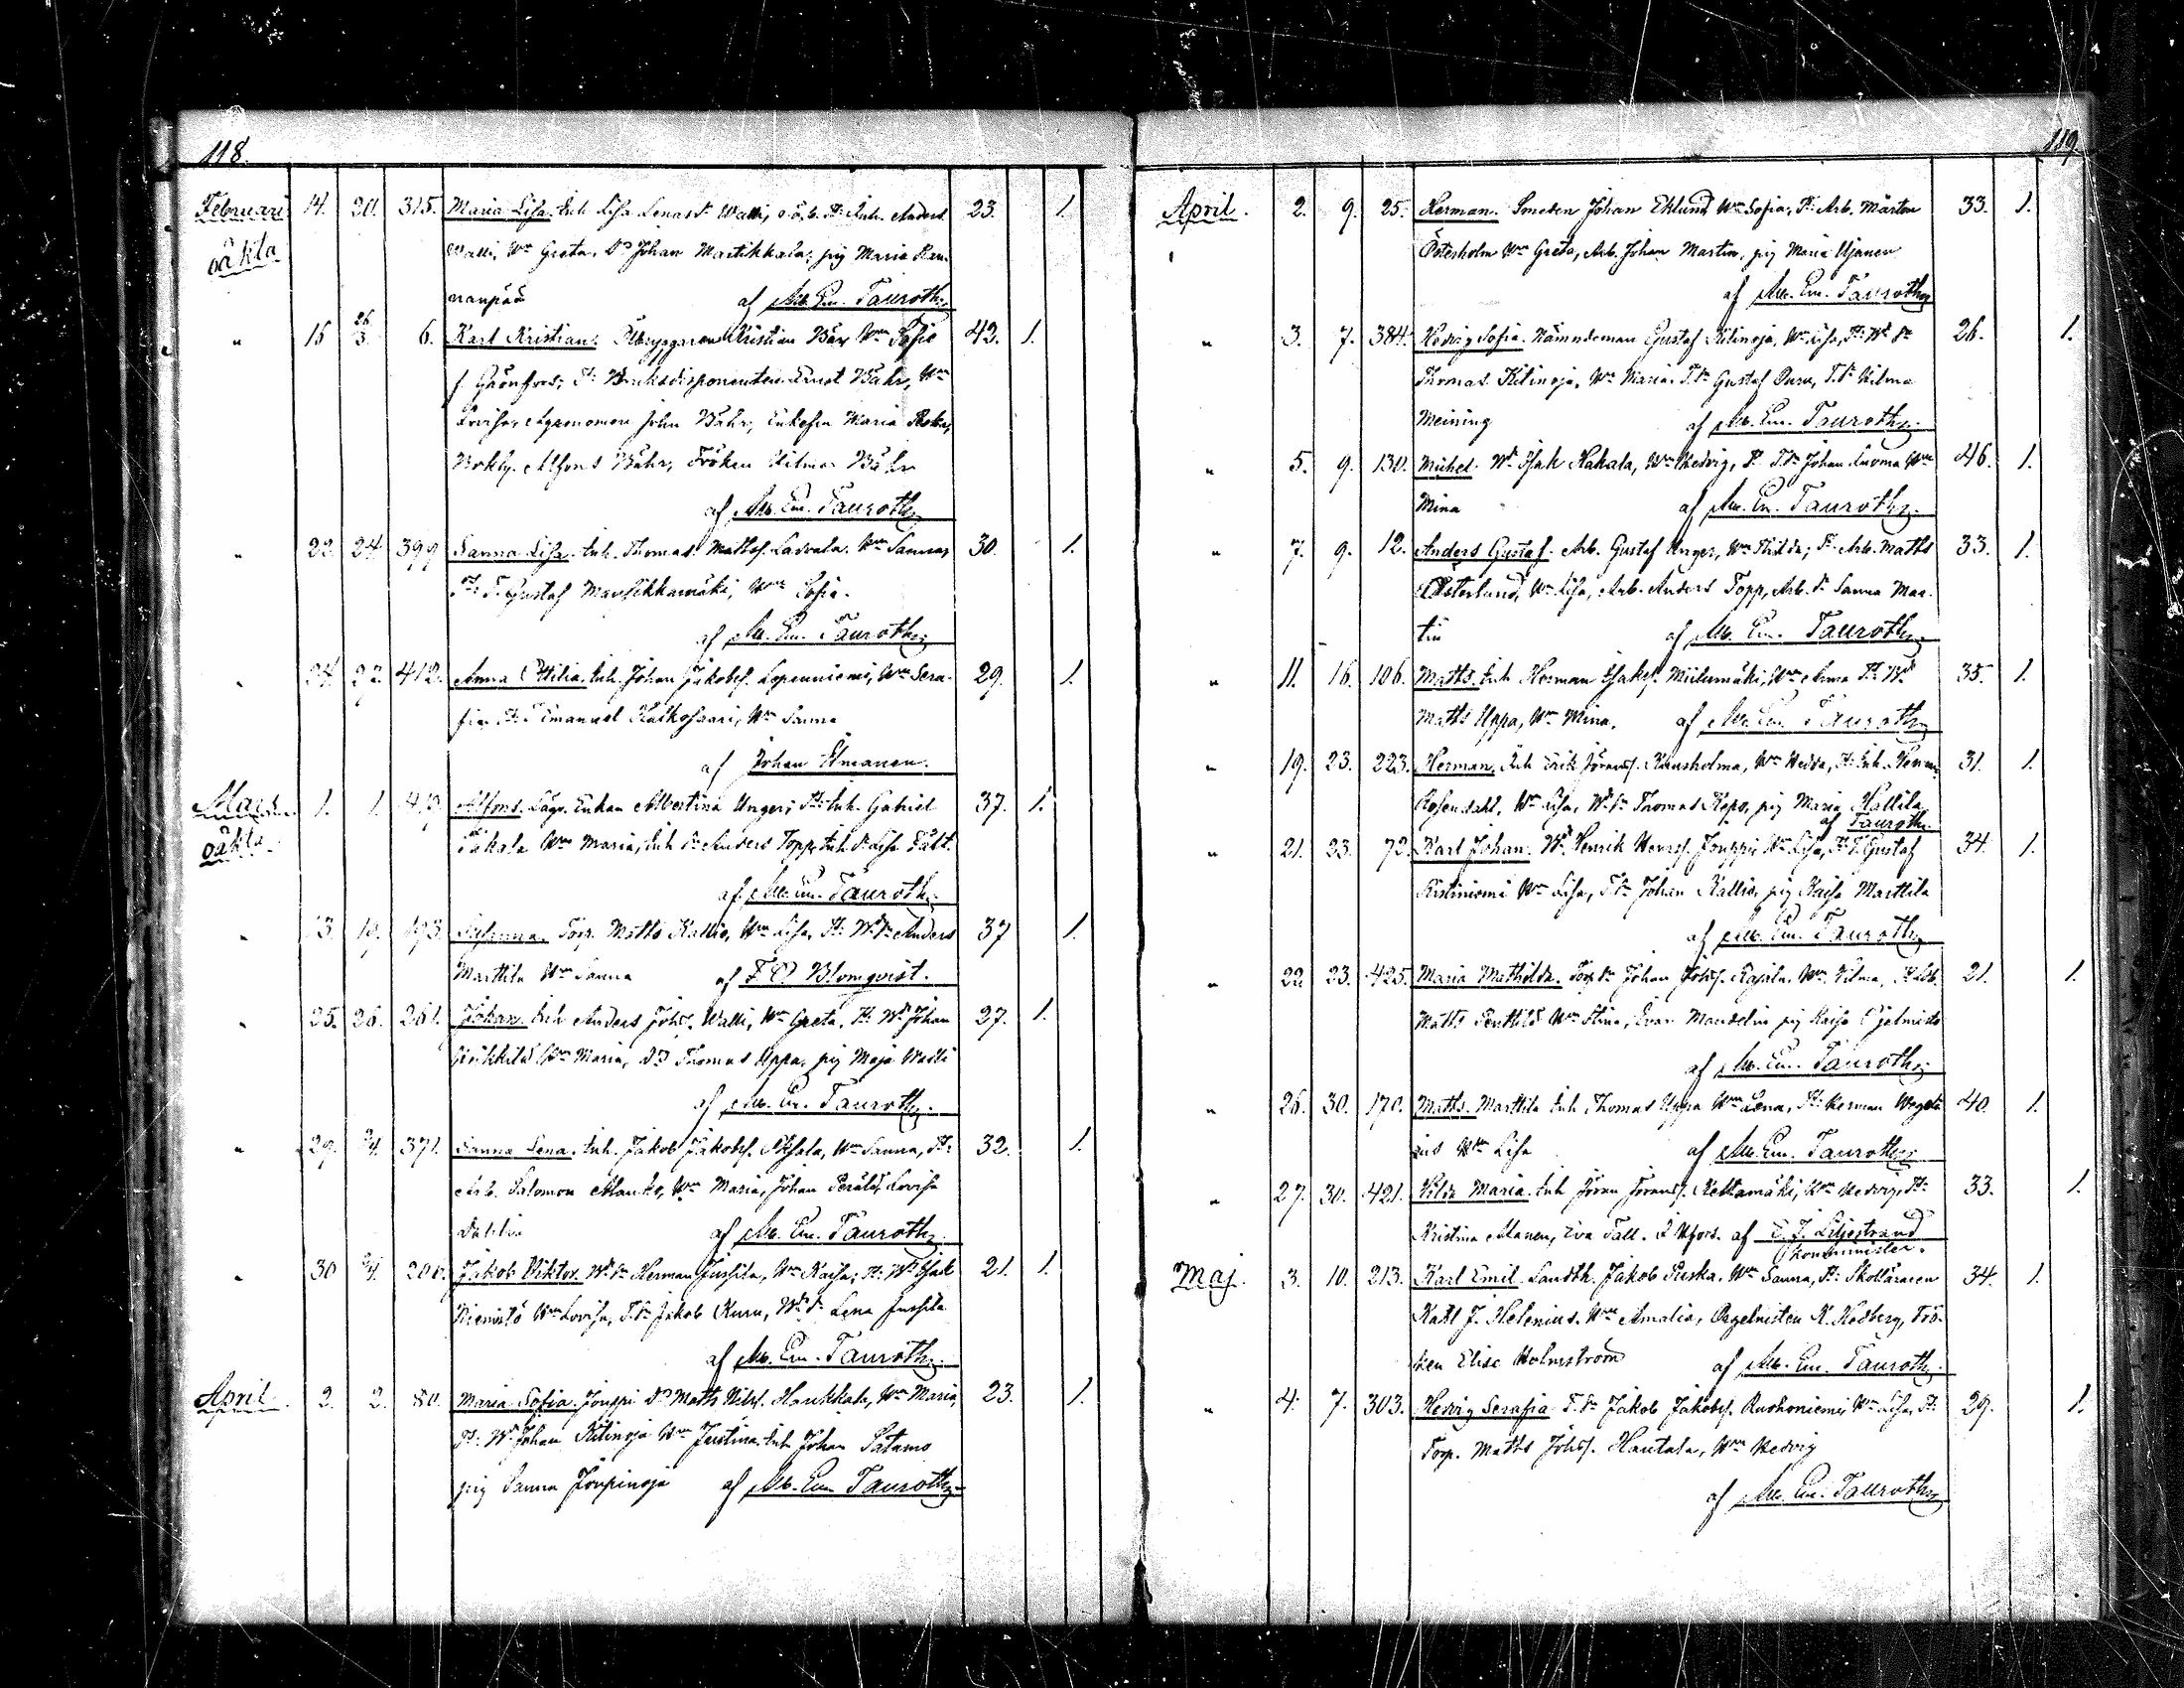 118.
Februari 14. 20. 315. Maria Lisa. Inh Lisa Lenasdr Walli, o.ä.b. Ft: Inh. Anders 23. 1.
oäkta Walli, Wm Greta. Dr Johan Martikkala, pig Maria Ran-
nanpää af Ab. Em. Tauroth.
" 15 26/3. 6. Karl Kristian. Ölbryggaren Kristian Bähr Wm Sofie 43. 1.
f. Grönfors; Ft: Bruksdisponenten Ernst Bähr, Wm
Lovisa, Agronomen John Bähr, Enkefru Maria
Bokh. Alfons Bähr, Fröken Hilma Bähr
af Ab. Em. Tauroth.
" 22. 24. 399 Sanna Lisa. Inh. Thomas Mattsf. Ladvala. Wm Sanna, 30. 1.
Ft: T. Gustaf Marttikkamäki, Wm Sofia.
af Ab. Em. Tauroth.
" 24. 27. 412. Anna Ottilia. Inh. Johan Jakobsf. Lepenniemi, Wm Sera- 29. 1.
fia Ft: T. Emanuel Kalkosaari, Wm Sanna
af Johan Elmanen.
Mars 1. 1. 413. Alfons. Lägv. Enkan Albertina Unger; Ft: Inh. Gabriel 37. 1.
oäkta Takala Wm Maria, Inh Sn Anders Topp, Inh dr Lisa Fält.
af Ab. Em. Tauroth.
" 13. 19. 193. Susanna. Torp. Matts Kallio, Wm Lisa, Ft: Wd Sn Anders 37 1.
Marttila Wm Sanna af F. O Blomqvist.
" 25. 26. 261. Johan. Inh Anders Johsf. Walli, Wm Greta, Ft: Wd Johan 27. 1.
Heikkilä Wm Maria, Dr Thomas Uppa, pig Maja Walli
af Ab. Em. Tauroth.
" 29. 3/4. 371. Sanna Lena. Inh. Jakob Jakobsf. Oksala, Wm Sanna, Ft: 32. 1.
Arb. Salomon Manko, Wm Maria, Johan Perälä, Lovisa
Dahlin af Ab. Em. Tauroth.
" 30 3/4. 206. Jakob Viktor. Wd Sn Herman Jussila, Wm Kaisa; Ft: Wd Isak 21. 1.
Niemistö Wm Lovisa, T. Sn Jakob Ruru, Wd dr Lena Jussila
af Ab. Em. Tauroth.
April 2. 2. 80. Maria Sofia. Jouppi Dr Matts Nilsf. Haukkala, Wm Maria, 23. 1.
Ft: Wd Johan Kitinoja Wm Justina, Inh Johan Satamo
pig Sanna Joupinoja af Ab. Em. Tauroth.
119
April. 2. 9. 25. Herman. Smeden Johan Eklund Wm Sofia, Ft: Arb. Mårten 33. 1.
Österholm Wm Greta, Arb. Johan Martin, pig Maria Ujanen
af Ab. Em. Tauroth
" 3. 7. 384. Hedvig Sofia. Nämndeman Gustaf Kitinoja, Wm Lisa, Ft: Wd Sn 26. 1.
Thomas Kitinoja, Wm Maria. T. Sn Gustaf Ouru, T. dr Hilma
Meining af Ab. Em. Tauroth.
" 5. 9. 130. Mickel. Wd Isak Kakala, Wm Hedvig, Ft: T. Sn Johan Luoma Wm 46. 1.
Mina af Ab. Em. Tauroth.
" 7. 9. 12. Anders Gustaf. Arb. Gustaf Unger, Wm Thilda; Ft: Arb. Matts 33. 1.
Österlund, Wm Lisa, Arb. Anders Topp, Arb. dr Sanna Mar-
tin af Ab. Em. Tauroth.
" 11. 16. 106. Matts. Inh Herman Isaksf. Miilumäki, Wm Anna Ft: Wd 35. 1.
Matts Uppa, Wm Mina. af Ab. Em. Tauroth
" 19. 23. 223. Herman. Inh Erik Jöransf. Kansholma, Wm Hedda, Ft: Inh. Herman 31. 1.
Rosendahl, Wm Lisa, Wd Sn Thomas Repo, pig Maria Hallila
af Tauroth.
" 21. 23. 72. Karl Johan. Wd Henrik Henrsf. Jouppi, Wm Lisa, Ft: T. Gustaf 34. 1.
Ristiniemi Wm Lisa, T. Sn Johan Kallio, pig Kaisa Marttila
af Ab. Em. Tauroth
" 22 23. 425. Maria Mathilda. Torp Sn Johan Johsf. Rajala. Wm Vilma, Ft: Arb. 21. 1.
Matts Penttilä Wm Stina, Evar Mandelin pig Kaisa Hjelmisto
af Ab. Em. Tauroth.
" 26. 30. 170. Matts. Marttila Inh Thomas Uppa Wm Lena, Ft: Herman Wegeli- 40. 1.
ius Wm Lisa af Ab. Em. Tauroth
" 27. 30. 421. Hilda Maria. Inh Jöran Jöransf. Keltamäki, Wm Hedvig, Ft: 33. 1.
Kristina Alanen, Eva Tall. af E. J. Liljestrand
Kommminister.
Maj. 3. 10. 213. Karl Emil. Landth. Jakob Puska. Wm Sanna, Ft: Skolläraren 34. 1.
Karl J. Helenius. Wm Amalia, Orgelnisten K. Hedberg, Frö-
ken Elise Holmström af Ab. Em. Tauroth.
" 4. 7. 303. Hedvig Serafia. T. Sn Jakob Jakobsf. Ruohoniemi, Wm Lisa, Ft: 29. 1.
Torp. Matts Johsf. Hautala, Wm Hedvig
af Ab. Em. Tauroth